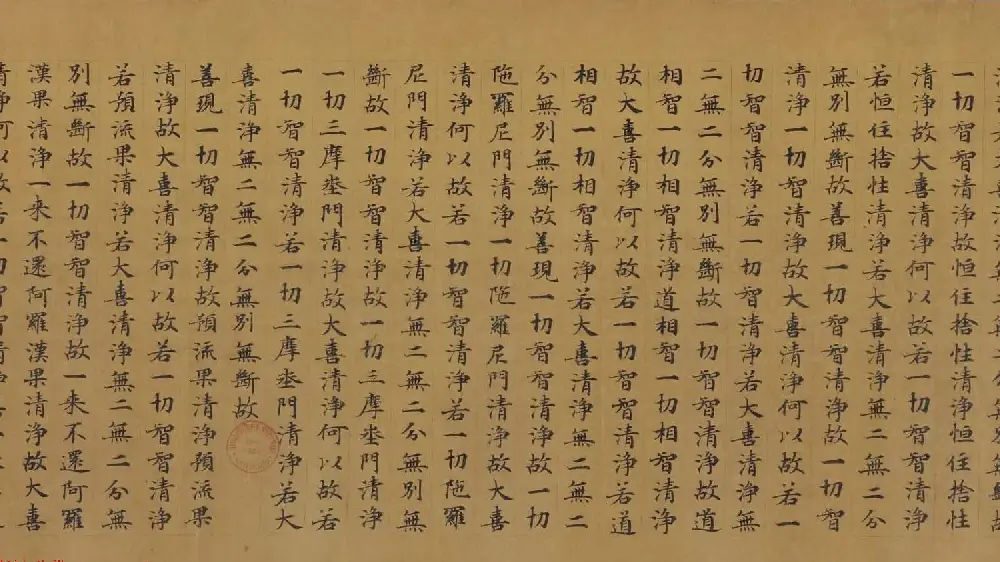 一切智智清浄故恒住捨性清浄恒住捨性
清浄故大喜清浄何以故若一切智智清浄
若恒住捨性清浄若大喜清浄無二無二分
無別無斷故善現一切智智清浄故一切智
清浄一切智清浄故大喜清浄何以故若一
切智智清浄若一切智清浄若大喜清浄無
二無二分無別無斷故一切智智清浄故道
相智一切相智清浄道相智一切相智清浄
故大喜清浄何以故若一切智智清浄若道
相智一切相智清浄若大喜清浄無二無二
分無別無斷故善現一切智智清浄故一切
陁羅尼門清浄一切陁羅尼門清浄故大喜
清浄何以故若一切智智清浄若一切陁羅
尼門清浄若大喜清浄無二無二分無別無
斷故一切智智清浄故一切三摩埊門清浄
一切三摩埊門清浄故大喜清浄何以故若
一切智智清浄若一切三摩埊門清浄若大
喜清浄無二無二分無別無斷故
善現一切智智清浄故預流果清浄預流果
清浄故大喜清浄何以故若一切智智清浄
若預流果清浄若大喜清浄無二無二分無
別無斷故一切智智清浄故一来不還阿羅
漢果清浄一来不還阿羅漢果清浄故大喜